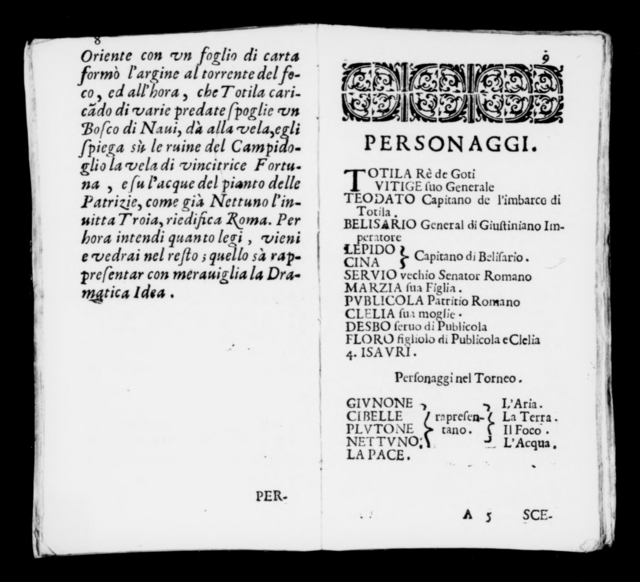 8
Oriente con vn foglio di carta
formò l'argine al torrente del fo-
co, ed all'hora, che Totila cari-
cãdo di varie predate spoglie vn
Bosco di Naui, dà alla vela, egli
spiega sù le ruine del Campido-
glio la vela di vincitrice Fortu-
na, e su l'acque del pianto delle
Patrizie, come già Nettuno l'in-
uitta Troia, riedifica Roma. Per
hora intendi quanto legi, vieni
e vedrai nel resto; quello sà rap-
presentar con merauiglia la Dra-
matica Idea.
PER-
9
PERSONAGGI.
TOTILA Rè de Goti
VITIGE suo Generale
TEODATO Capitano de l'imbarco di
Totila.
BELISARIO General di Giustiniano Im-
peratore
LEPIDO
CINA } Capitano di Belisario.
SERVIO vechio Senator Romano
MARZIA sua Figlia.
PVBLICOLA Patritio Romano
CLELIA sua moglie.
DESBO seruo di Publicola
FLORO figliolo di Publicola e Clelia
4. ISAVRI.
Personaggi nel Torneo.
GIVNONE } L'Aria.
CIBELLE } rapresen- } La Terra.
PLVTONE } tano. } Il Foco.
NETTVNO } L'Acqua.
LA PACE.
A 5 SCE-